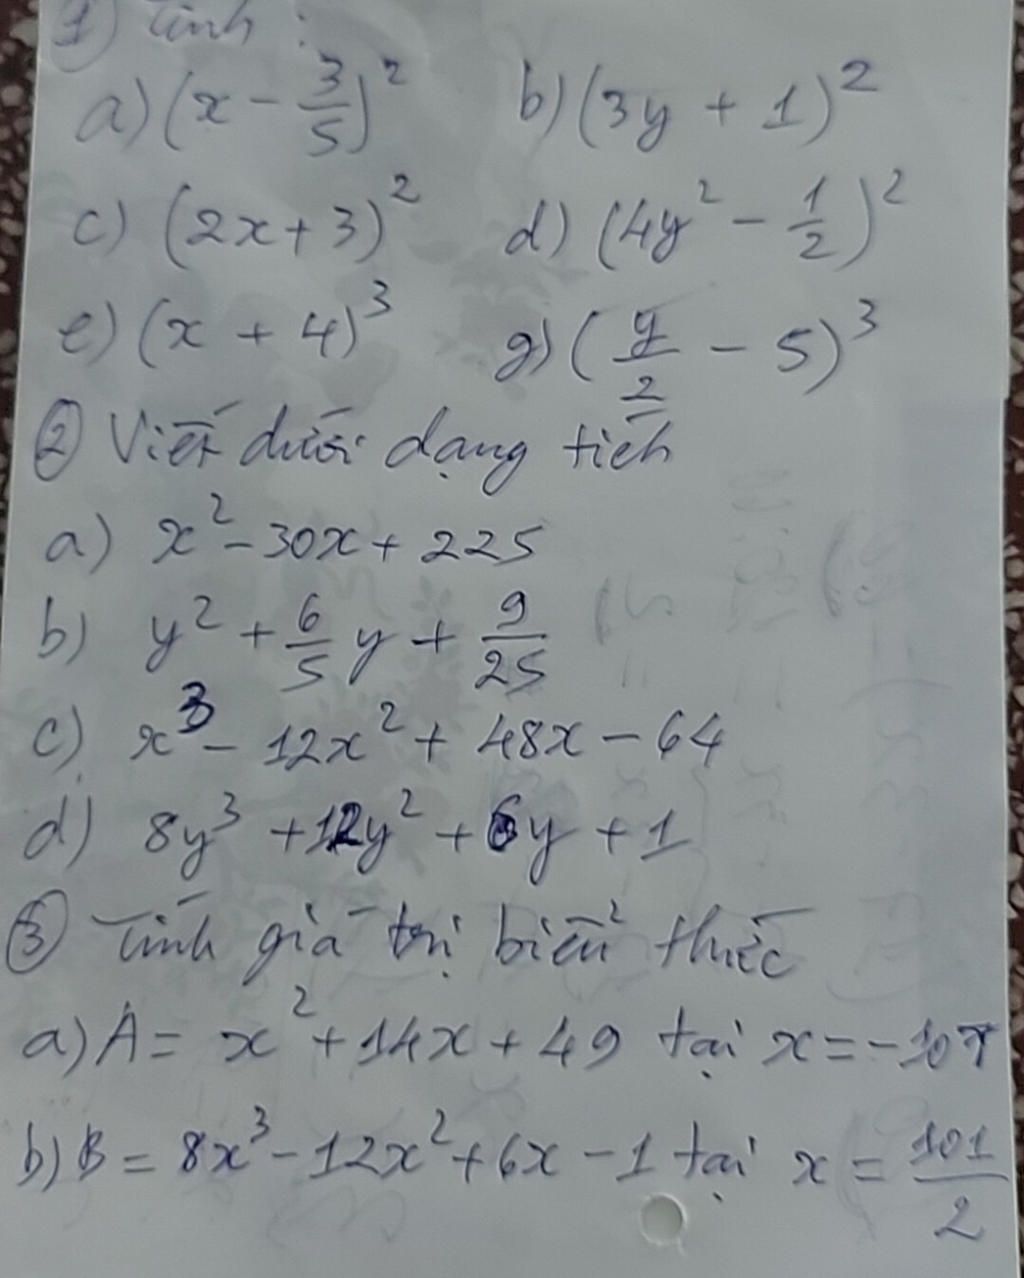 1) Tính :
a) (x - 3/5)² b) (3y + 1)²
c) (2x + 3)² d) (4y² - 1/2)²
e) (x + 4)³ g) (y/2 - 5)³
2 Viết dưới dạng tích
a) x² - 30x + 225
b) y² + 6/5 y + 9/25
c) x³ - 12x² + 48x - 64
d) 8y³ + 12y² + 6y + 1
3 Tính giá trị biểu thức
a) A = x² + 14x + 49 tại x = -107
b) B = 8x³ - 12x² + 6x - 1 tại x = 101/2